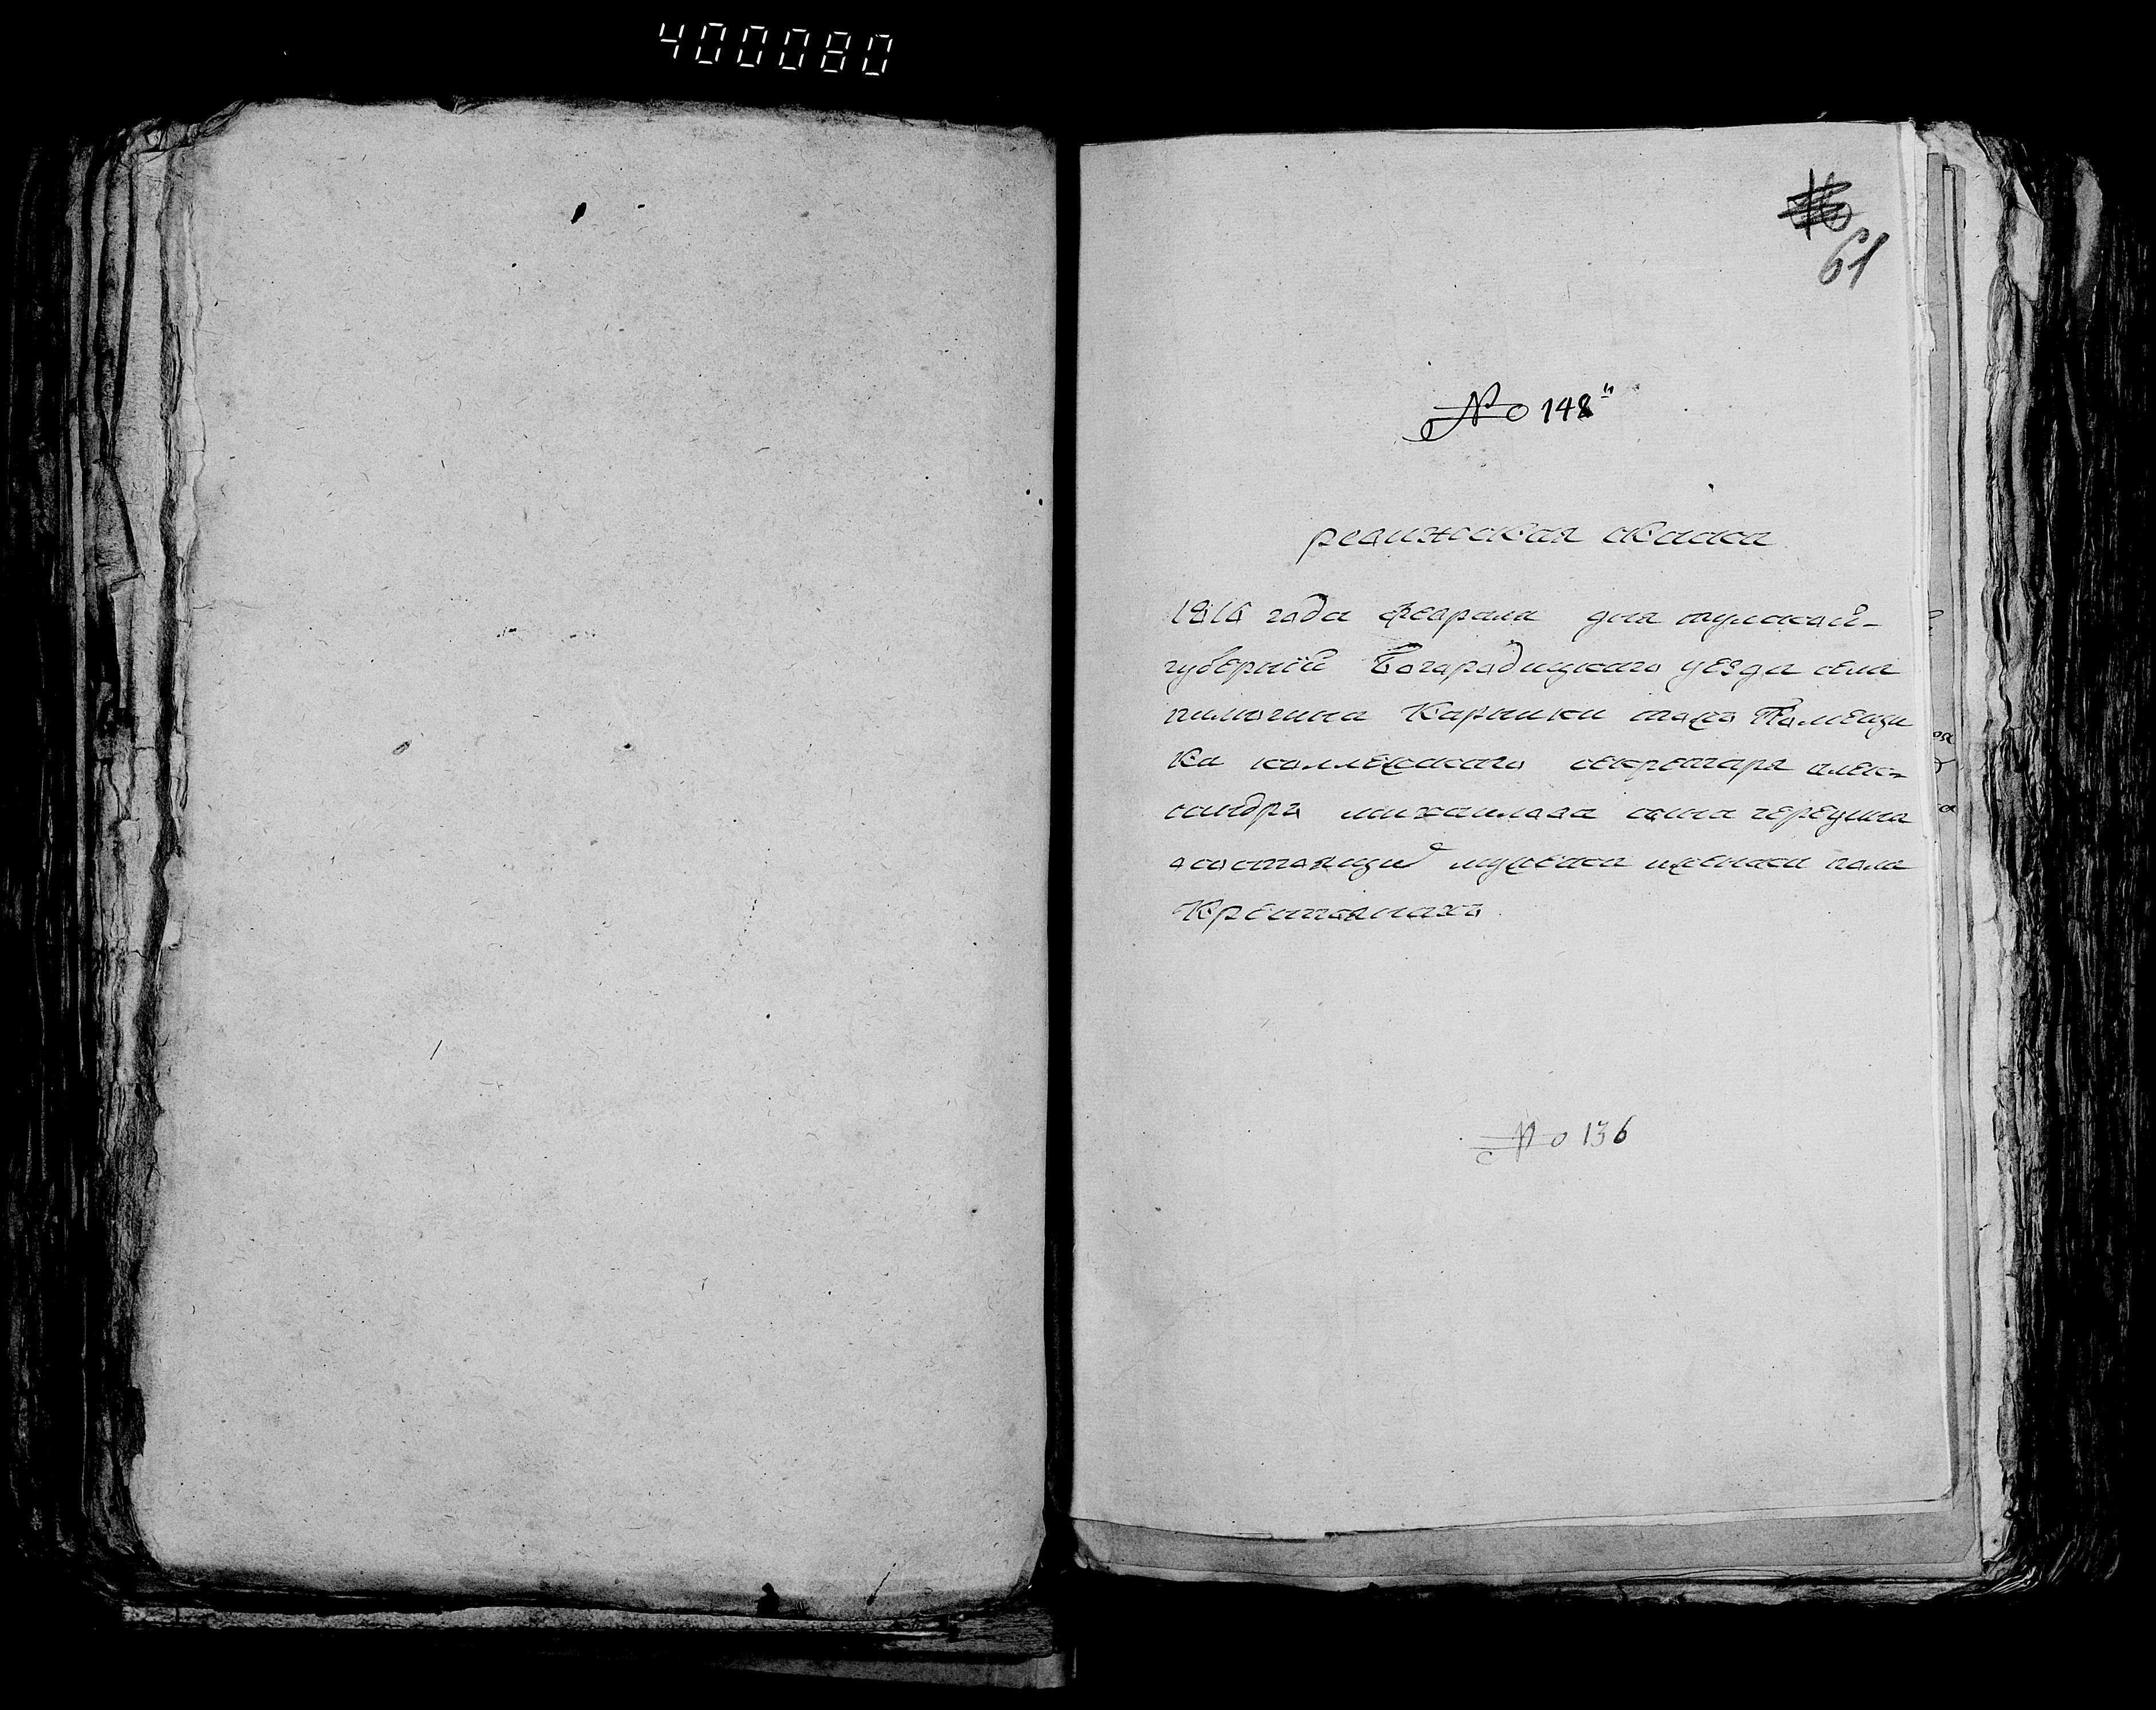 400080
61
No 148й
ревижская скаска
1816 года февраля дня тулской-
губернїй Богародицкаго уезда села
Карники тожъ Помещи
ка коллежскаго секретаря алек-
сандра михаилова сына
осостоящи мужеска иженска пола
Крестьянахъ
No 136